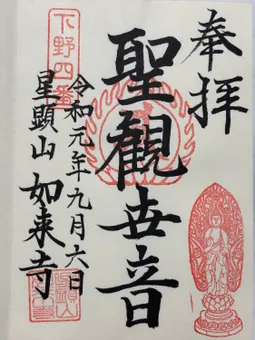 奉拝
聖観世音
下野四番
令和元年九月六日
星顕山 如来寺